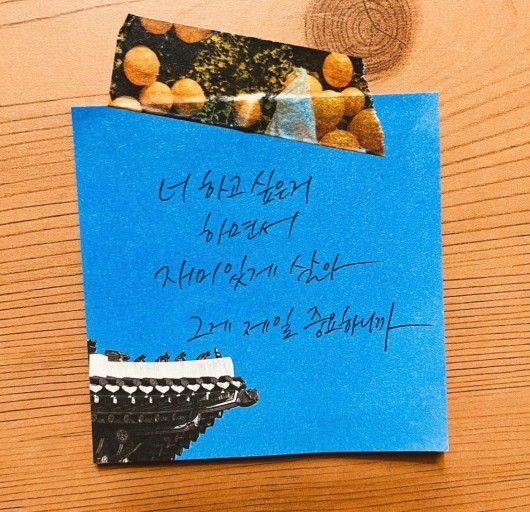 너 하고 싶은거
하면서
재미있게 살아
그게 제일 중요하니까